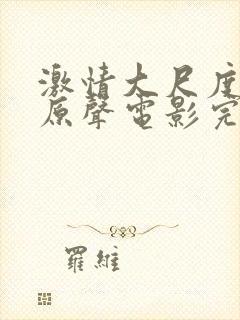 激情大尺度
原聲電影完
羅維